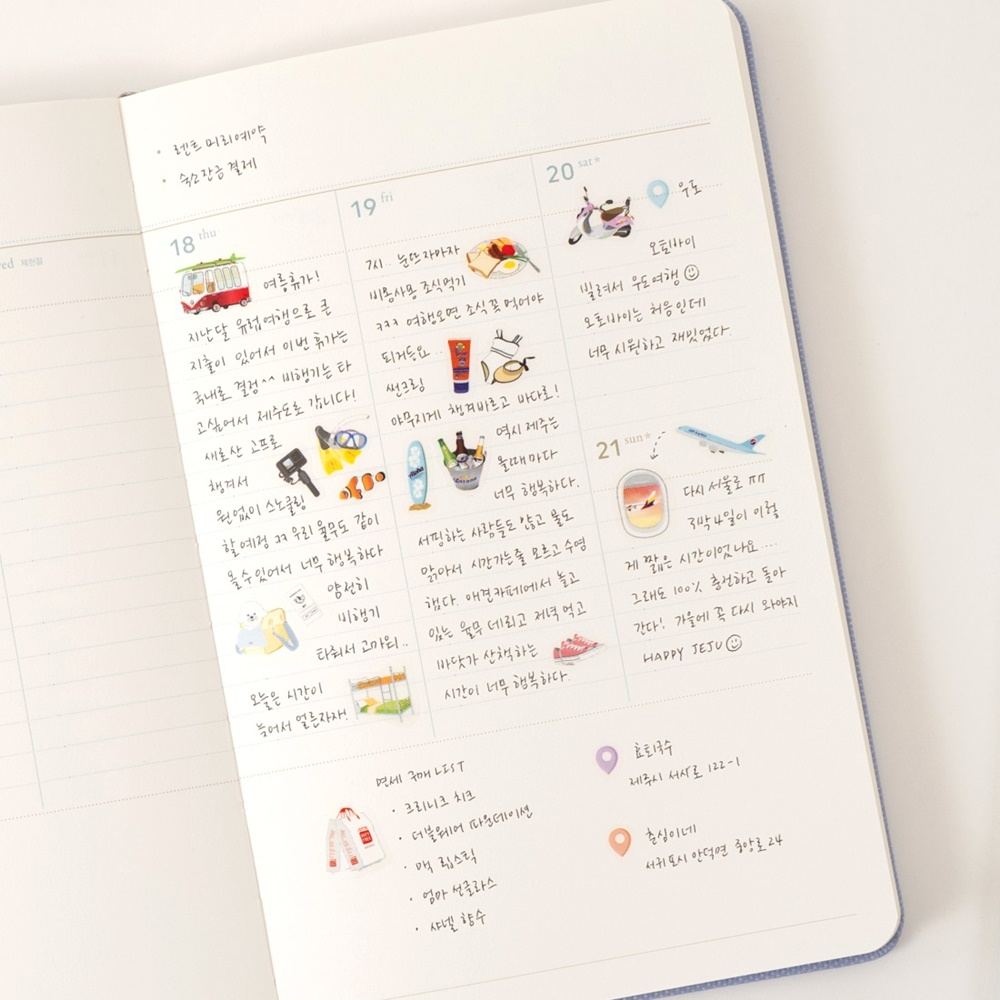 · 렌트 미리예약
· 숙소잔금 결제
18 thu
여름휴가!
지난달 유럽여행으로 큰
지출이 있어서 이번 휴가는
국내로 결정^^ 비행기는 타
고싶어서 제주도로 갑니다!
새로산 고프로
챙겨서
원없이 스노클링
할예정 ㅋㅋ 우리 율무도 같이
올수있어서 너무 행복하다
얌전히
비행기
타줘서 고마워..
오늘은 시간이
늦어서 얼른자자!
19 fri
7시.. 눈뜨자마자
비몽사몽 조식먹기
ㅋㅋㅋ 여행오면 조식 꼭 먹어야
되거든요..
썬크림
야무지게 챙겨바르고 바다로!
역시 제주는
올때마다
너무 행복하다.
서핑하는 사람들도 많고 물도
맑아서 시간가는줄 모르고 수영
했다. 애견카페에서 놀고
있는 율무 데리고 저녁 먹고
바닷가 산책하는
시간이 너무 행복하다.
20 sat*
우도
오토바이
빌려서 우도여행
오토바이는 처음인데
너무 시원하고 재밌었다.
21 sun*
다시 서울로 ㅠㅠ
3박4일이 이렇
게 짧은 시간이었나요....
그래도 100% 충전하고 돌아
간다! 가을에 꼭 다시 와야지
HAPPY JEJU
면세 구매 LIST
· 크리니크 치크
· 더블웨어 파운데이션
· 맥 립스틱
· 엄마 선글라스
· 샤넬 향수
효퇴국수
제주시 서사로 122-1
춘심이네
서귀포시 안덕면 중앙로 24